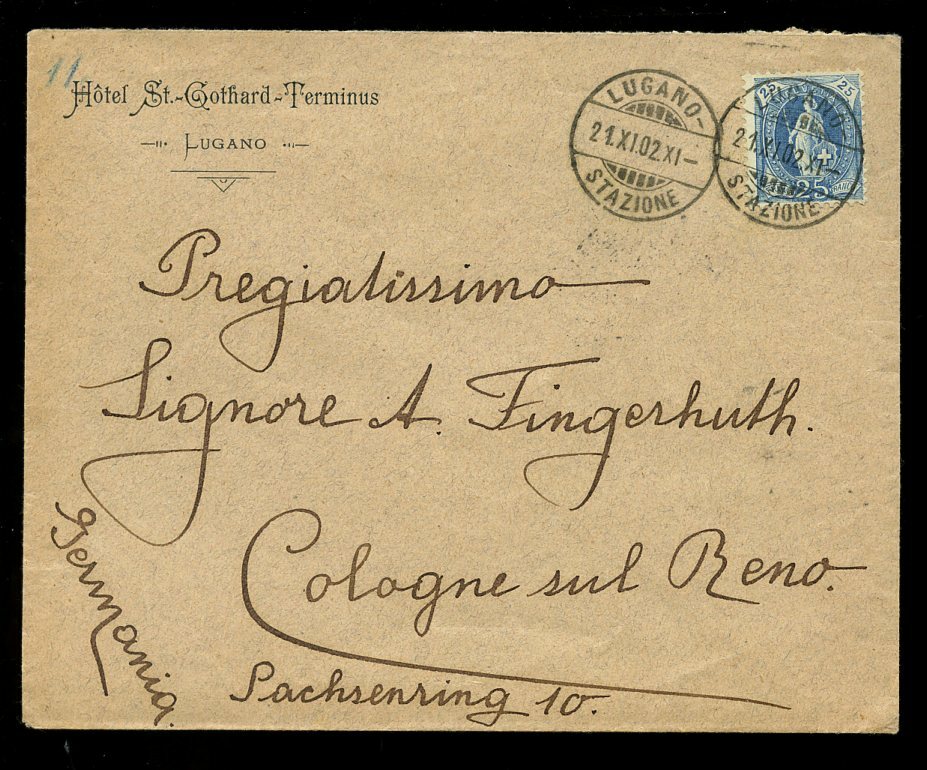 11
Hôtel St.-Gothard-Terminus
LUGANO
LUGANO-
21.XI.02.XI-
STAZIONE
25 25
LUGANO-
21.XI.02.XI-
STAZIONE
25
Pregiatissimo
Signore A. Fingerhuth.
Cologne sul Reno.
Germania.
Sachsenring 10.